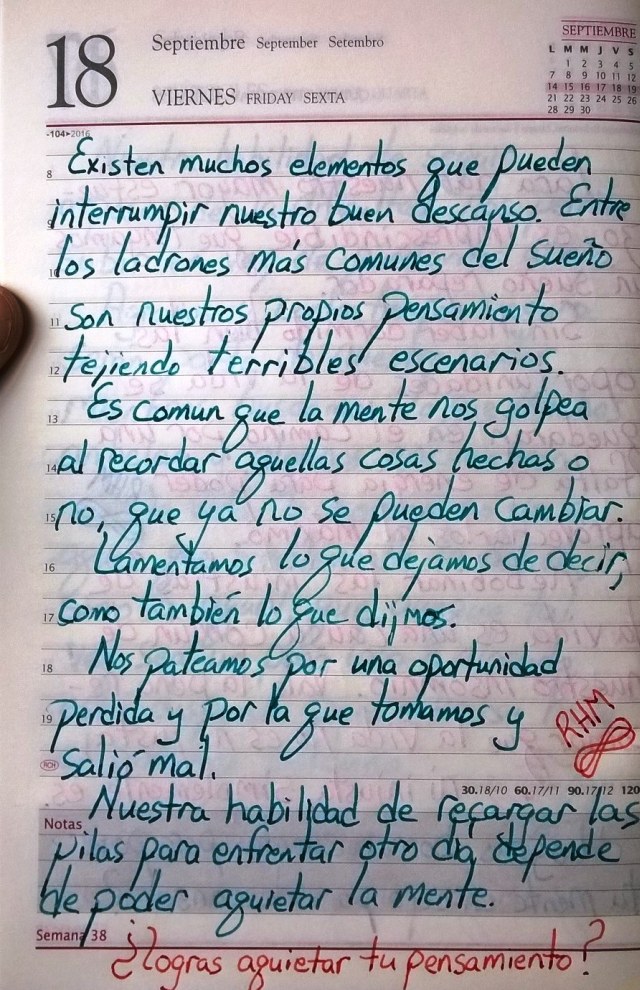 18
Septiembre September Setembro
VIERNES FRIDAY SEXTA
SEPTIEMBRE
L M M J V S
1 2 3 4 5
7 8 9 10 11 12
14 15 16 17 18 19
21 22 23 24 25 26
28 29 30
-104▸2016
8 Existen muchos elementos que pueden
interrumpir nuestro buen descanso. Entre
10 los ladrones más comunes del sueño
11 son nuestros propios pensamiento
12 tejiendo terribles escenarios.
13 Es comun que la mente nos golpea
14 al recordar aquellas cosas hechas o
15 no, que ya no se pueden cambiar.
16 Lamentamos lo que dejamos de decir,
17 como también lo que dijmos.
18 Nos pateamos por una oportunidad
19 perdida y por la que tomamos y
RHM
salió mal.
30.18/10 60.17/11 90.17/12 120
Nuestra habilidad de reçargar las
Notas
pilas para enfrentar otro día, depende
de poder aquietar la mente.
Semana 38
¿logras aquietar tu pensamiento?